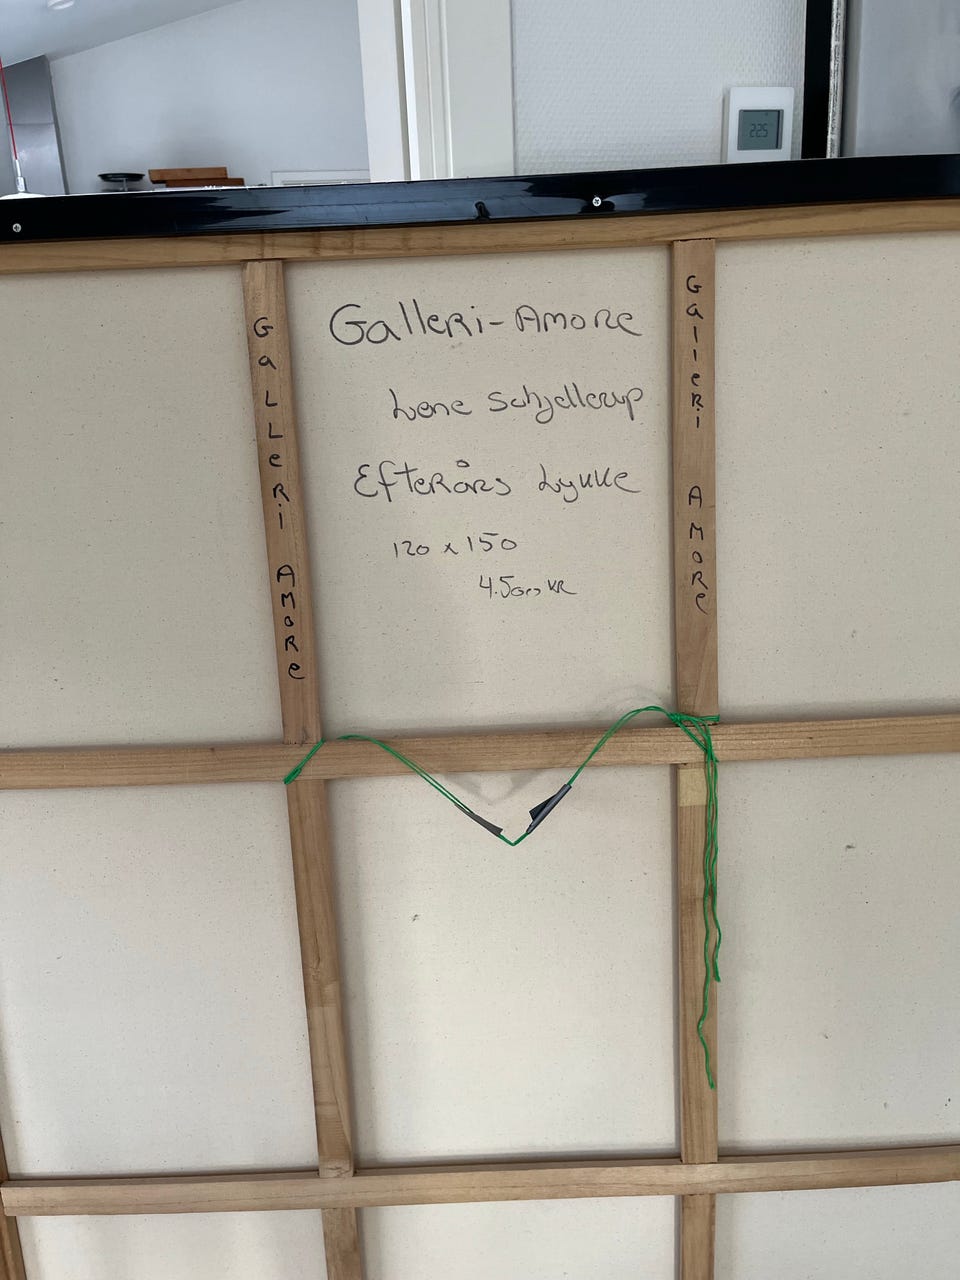 22.5
Galleri-Amore
Lene Schjellerup
Efterårs Lykke
120 x 150
4.500 KR
GaLLeRi AMORe
GalleRi AMORe